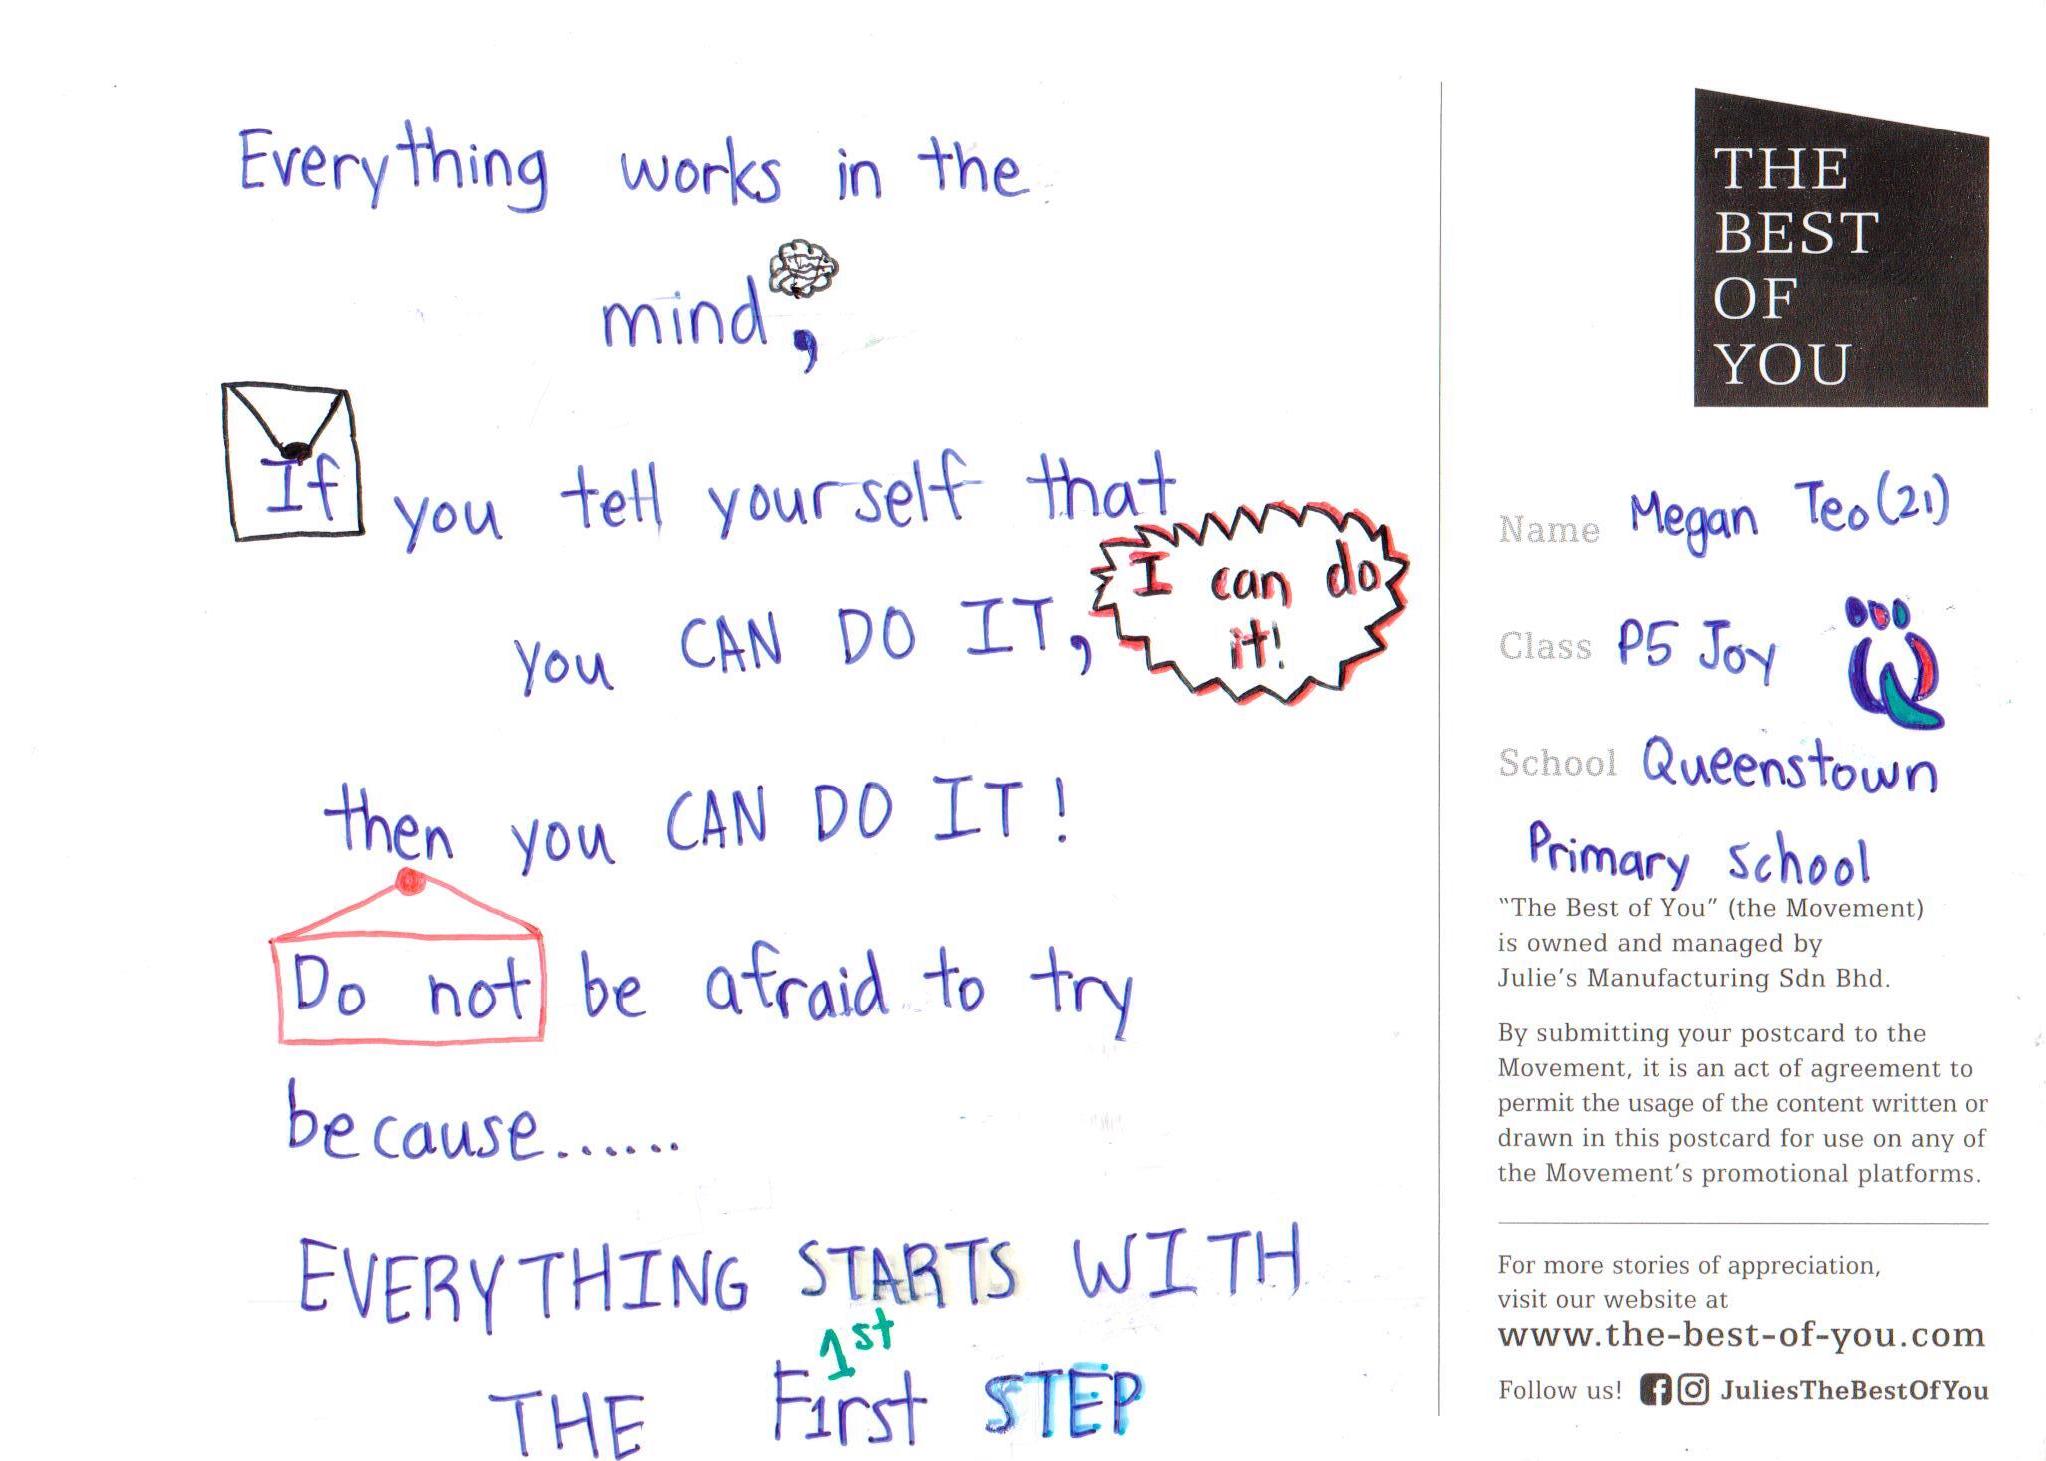 Everything works in the
mind,
If you tell yourself that
you CAN DO IT,
I can do
it!
then you CAN DO IT!
Do not be afraid to try
because......
EVERYTHING STARTS WITH
1st
THE First STEP
THE
BEST
OF
YOU
Name Megan Teo (21)
Class P5 Joy
School Queenstown
Primary School
"The Best of You" (the Movement)
is owned and managed by
Julie's Manufacturing Sdn Bhd.
By submitting your postcard to the
Movement, it is an act of agreement to
permit the usage of the content written or
drawn in this postcard for use on any of
the Movement's promotional platforms.
For more stories of appreciation,
visit our website at
www.the-best-of-you.com
Follow us! JuliesTheBestOfYou